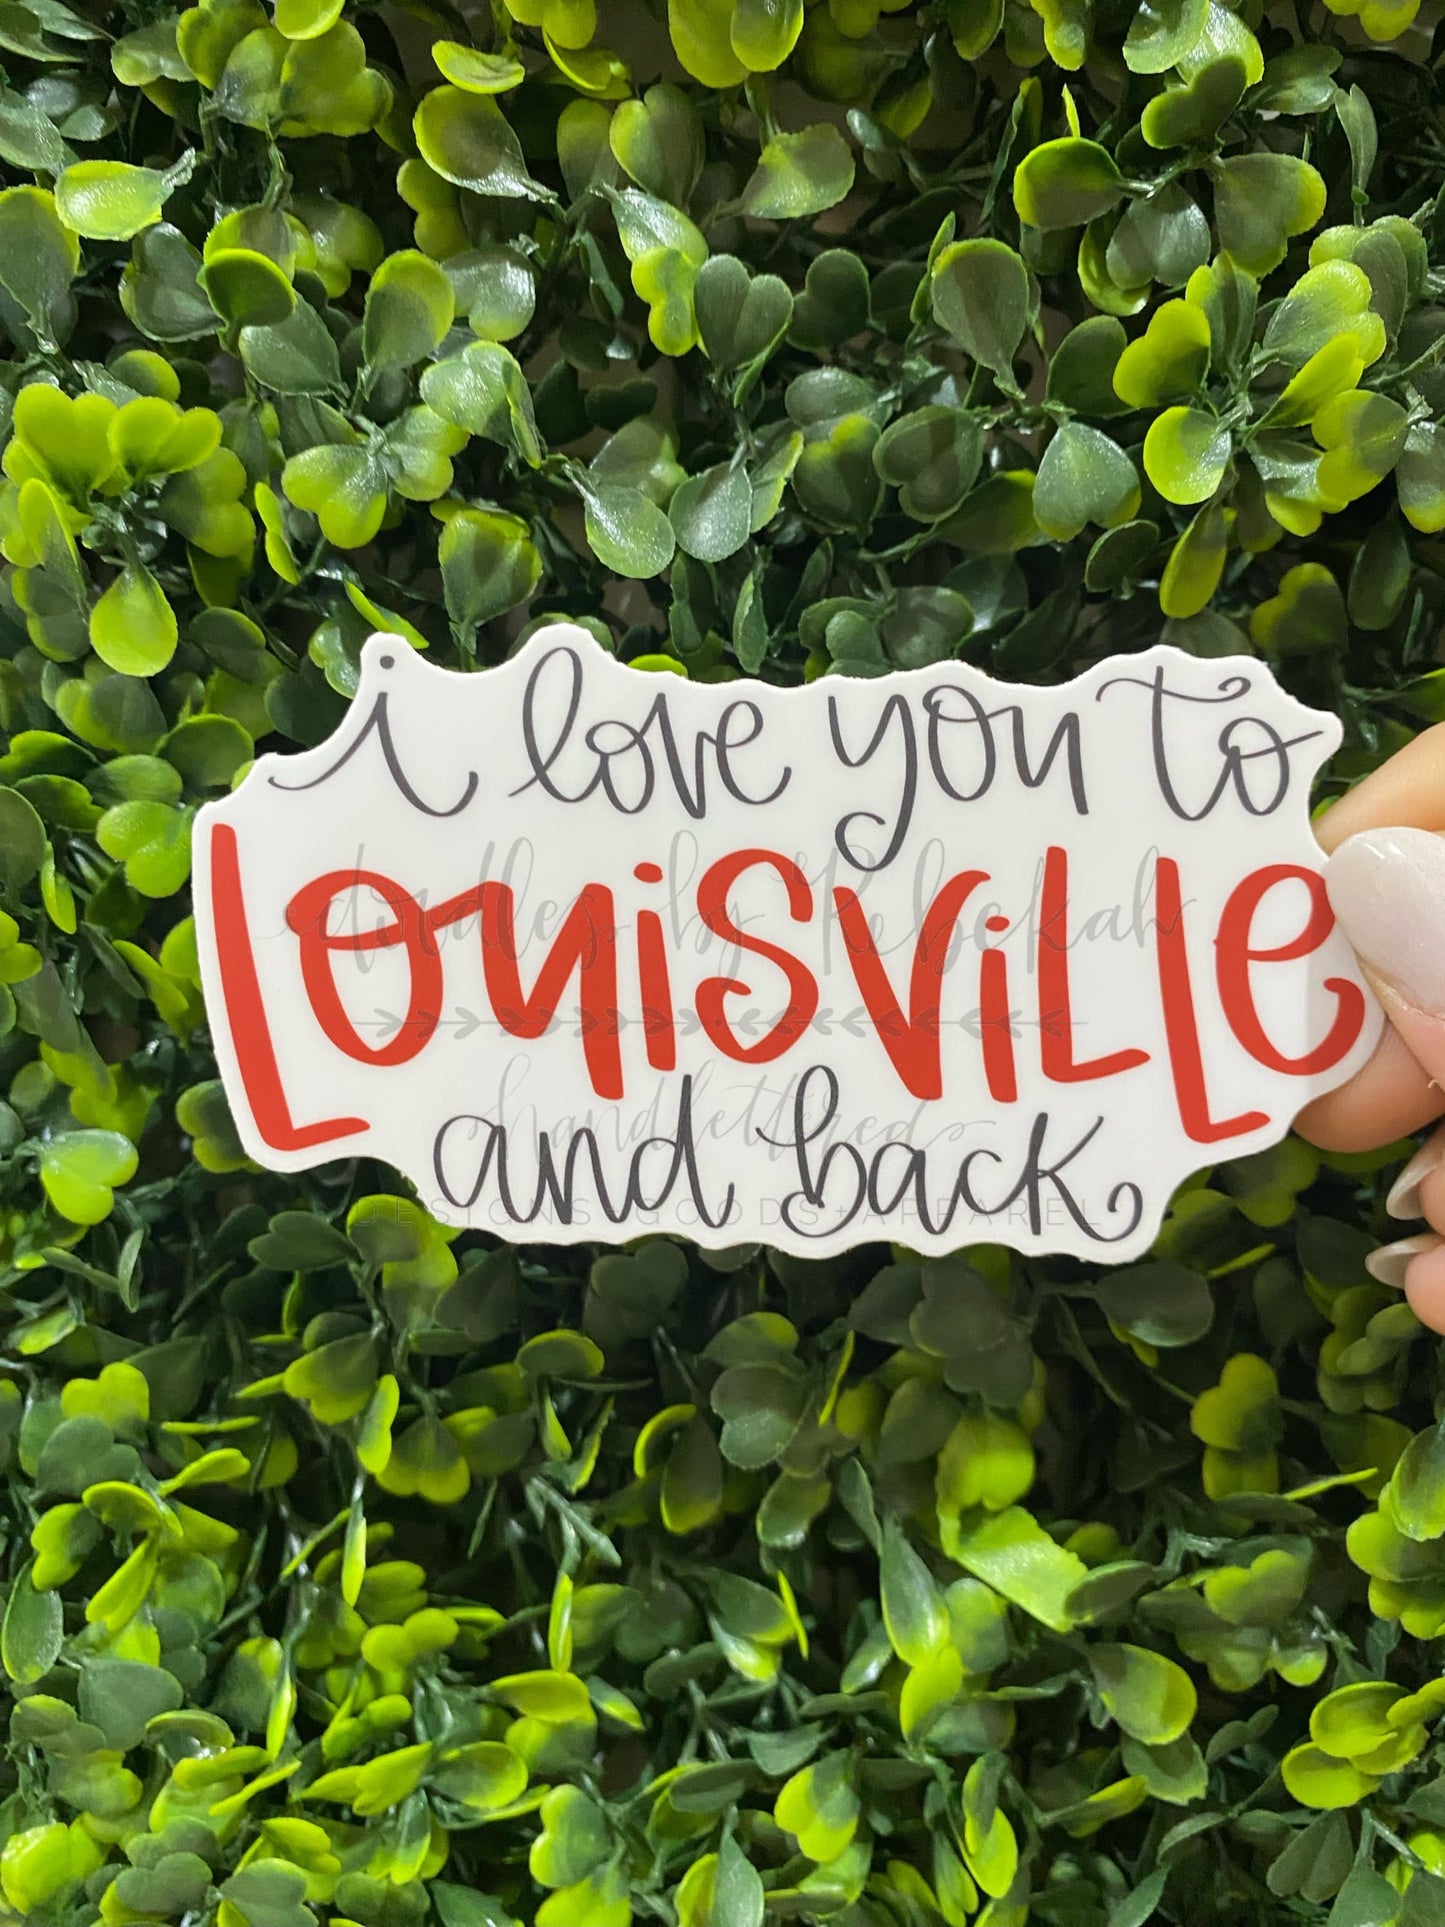 i love you to
LOUISVILLE
and back
doodles by Rebekah
handlettered
DESIGNS+GOODS+APPAREL